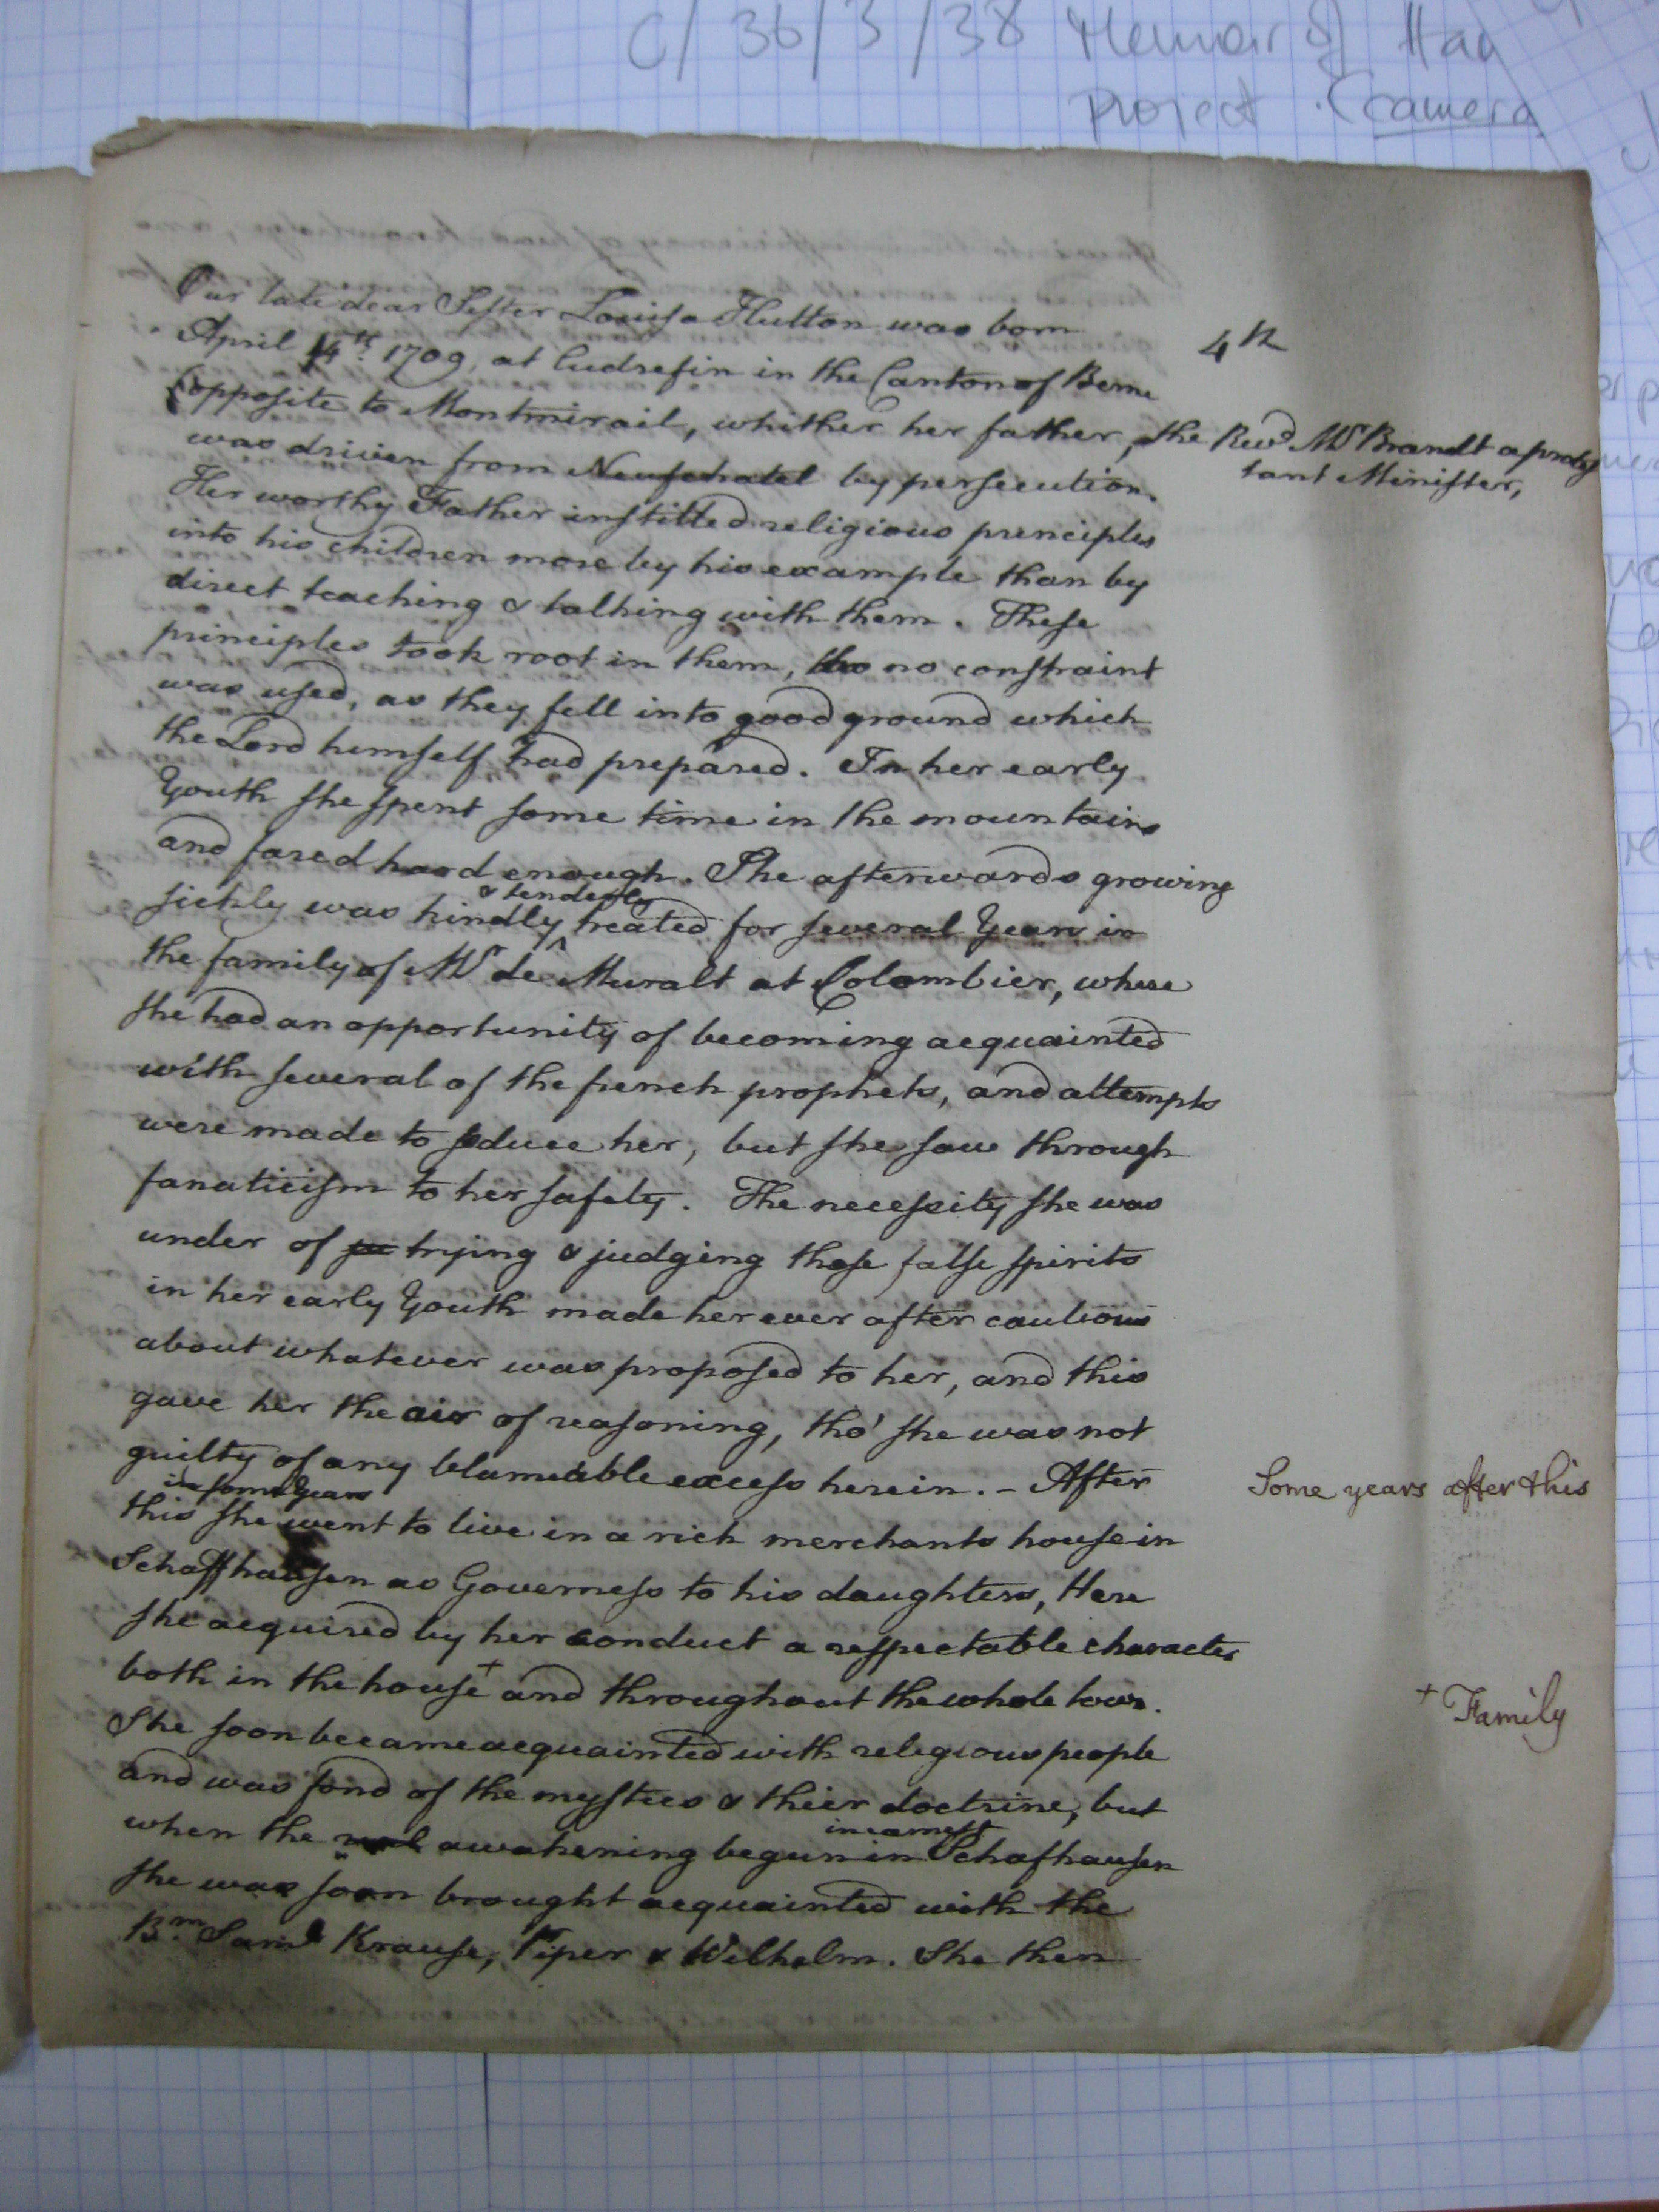 C/36/3/38 Memoir of Hau
Project Camera
Our late dear Sister Louisa Hutton was born
April 14th. 1709, at Cudrefin in the Canton of Berne
4th
(opposite to Montmirail, whither her father, the Revd. Mr Brandt a protes
tant Minister,
was driven from Neufchatel by persecution.
Her worthy Father instilled religious principles
into his children more by his example than by
direct teaching & talking with them. These
principles took root in them, tho no constraint
was used, as they fell into good ground which
the Lord himself had prepared. In her early
Youth she spent some time in the mountains
and fared hard enough. She afterwards growing
& tenderly
sickly was kindly ^ treated for several Years in
the family of Mr de Muralt at Colombier, where
she had an opportunity of becoming acquainted
with several of the french prophets, and attempts
were made to seduce her, but she saw through
fanaticism to her safety. The necessity she was
under of trying & judging these false spirits
in her early Youth made her ever after cautious
about whatever was proposed to her, and this
gave her the air of reasoning, tho' she was not
guilty of any blameable excess herein. - After
Some years after this
in some Years
this she went to live in a rich merchants house in
Schaffhausen as Governess to his daughters, Here
she acquired by her conduct a respectable character
both in the house + and throughout the whole town.
+ Family
She soon became acquainted with religious people
and was fond of the mystics & thier doctrine, but
in earnest
when the awakening began in Schafhausen
she was soon brought acquainted with the
Brn. Saml Krause, Piper & Wilhelm. She then